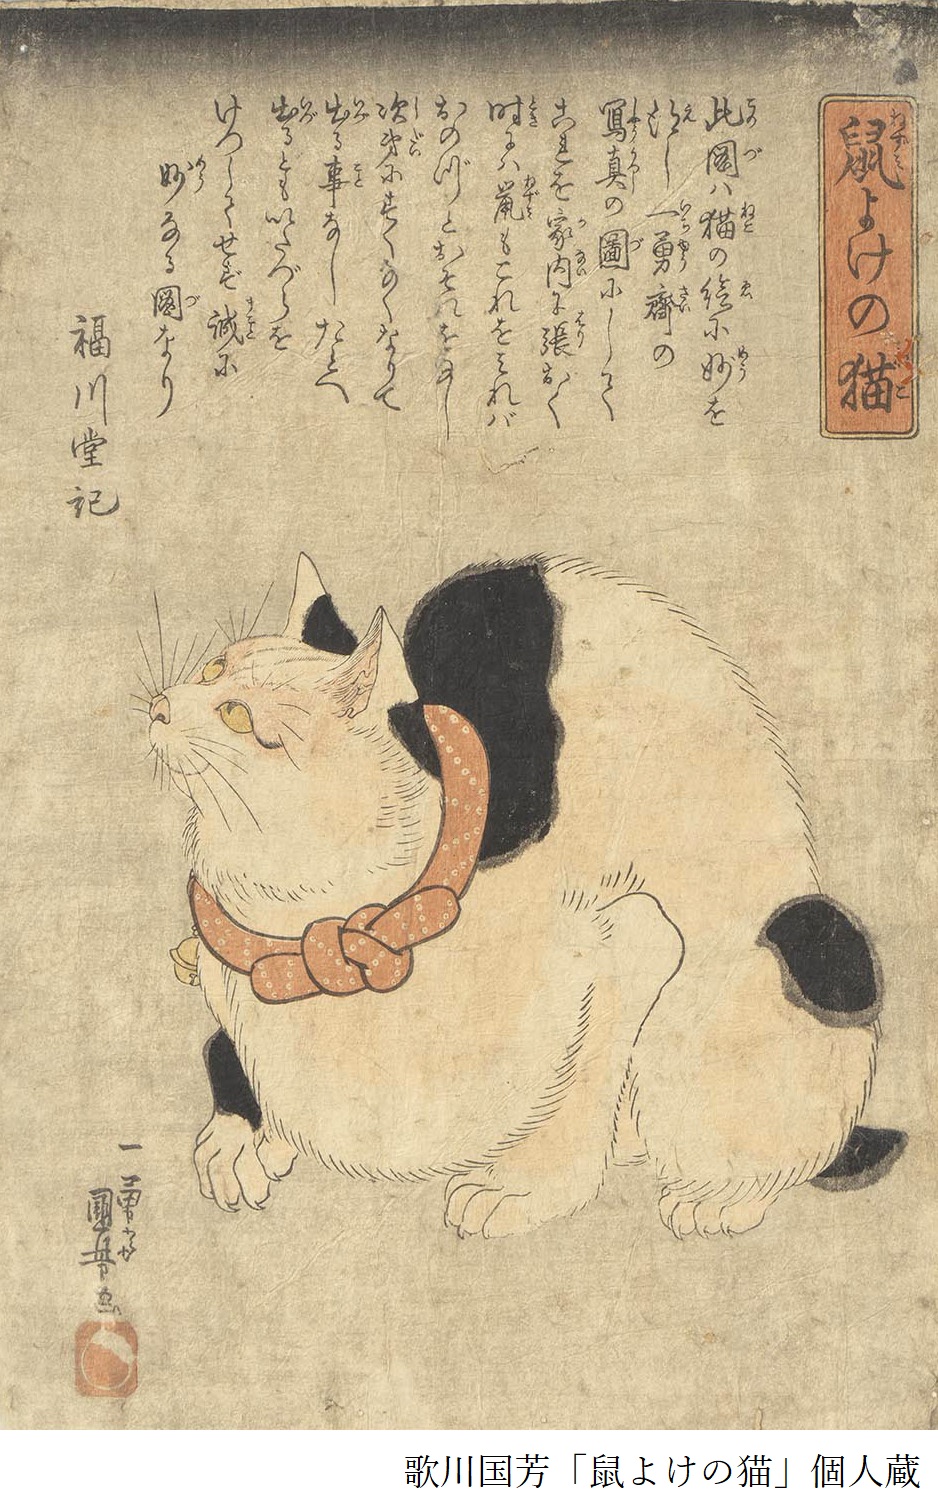 鼠よけの猫
此圖ハ猫の絵に妙を
得し一勇齋の
寫真の圖にして
これを家内に張おく
時にハ鼠もこれをみれバ
おのづとおそれをなし
次第にすくなくなりて
出る事なしたとへ
出るともいたづらを
けつしてせず誠に
妙なる圖なり
福川堂記
一勇齋
國芳画
歌川国芳「鼠よけの猫」個人蔵